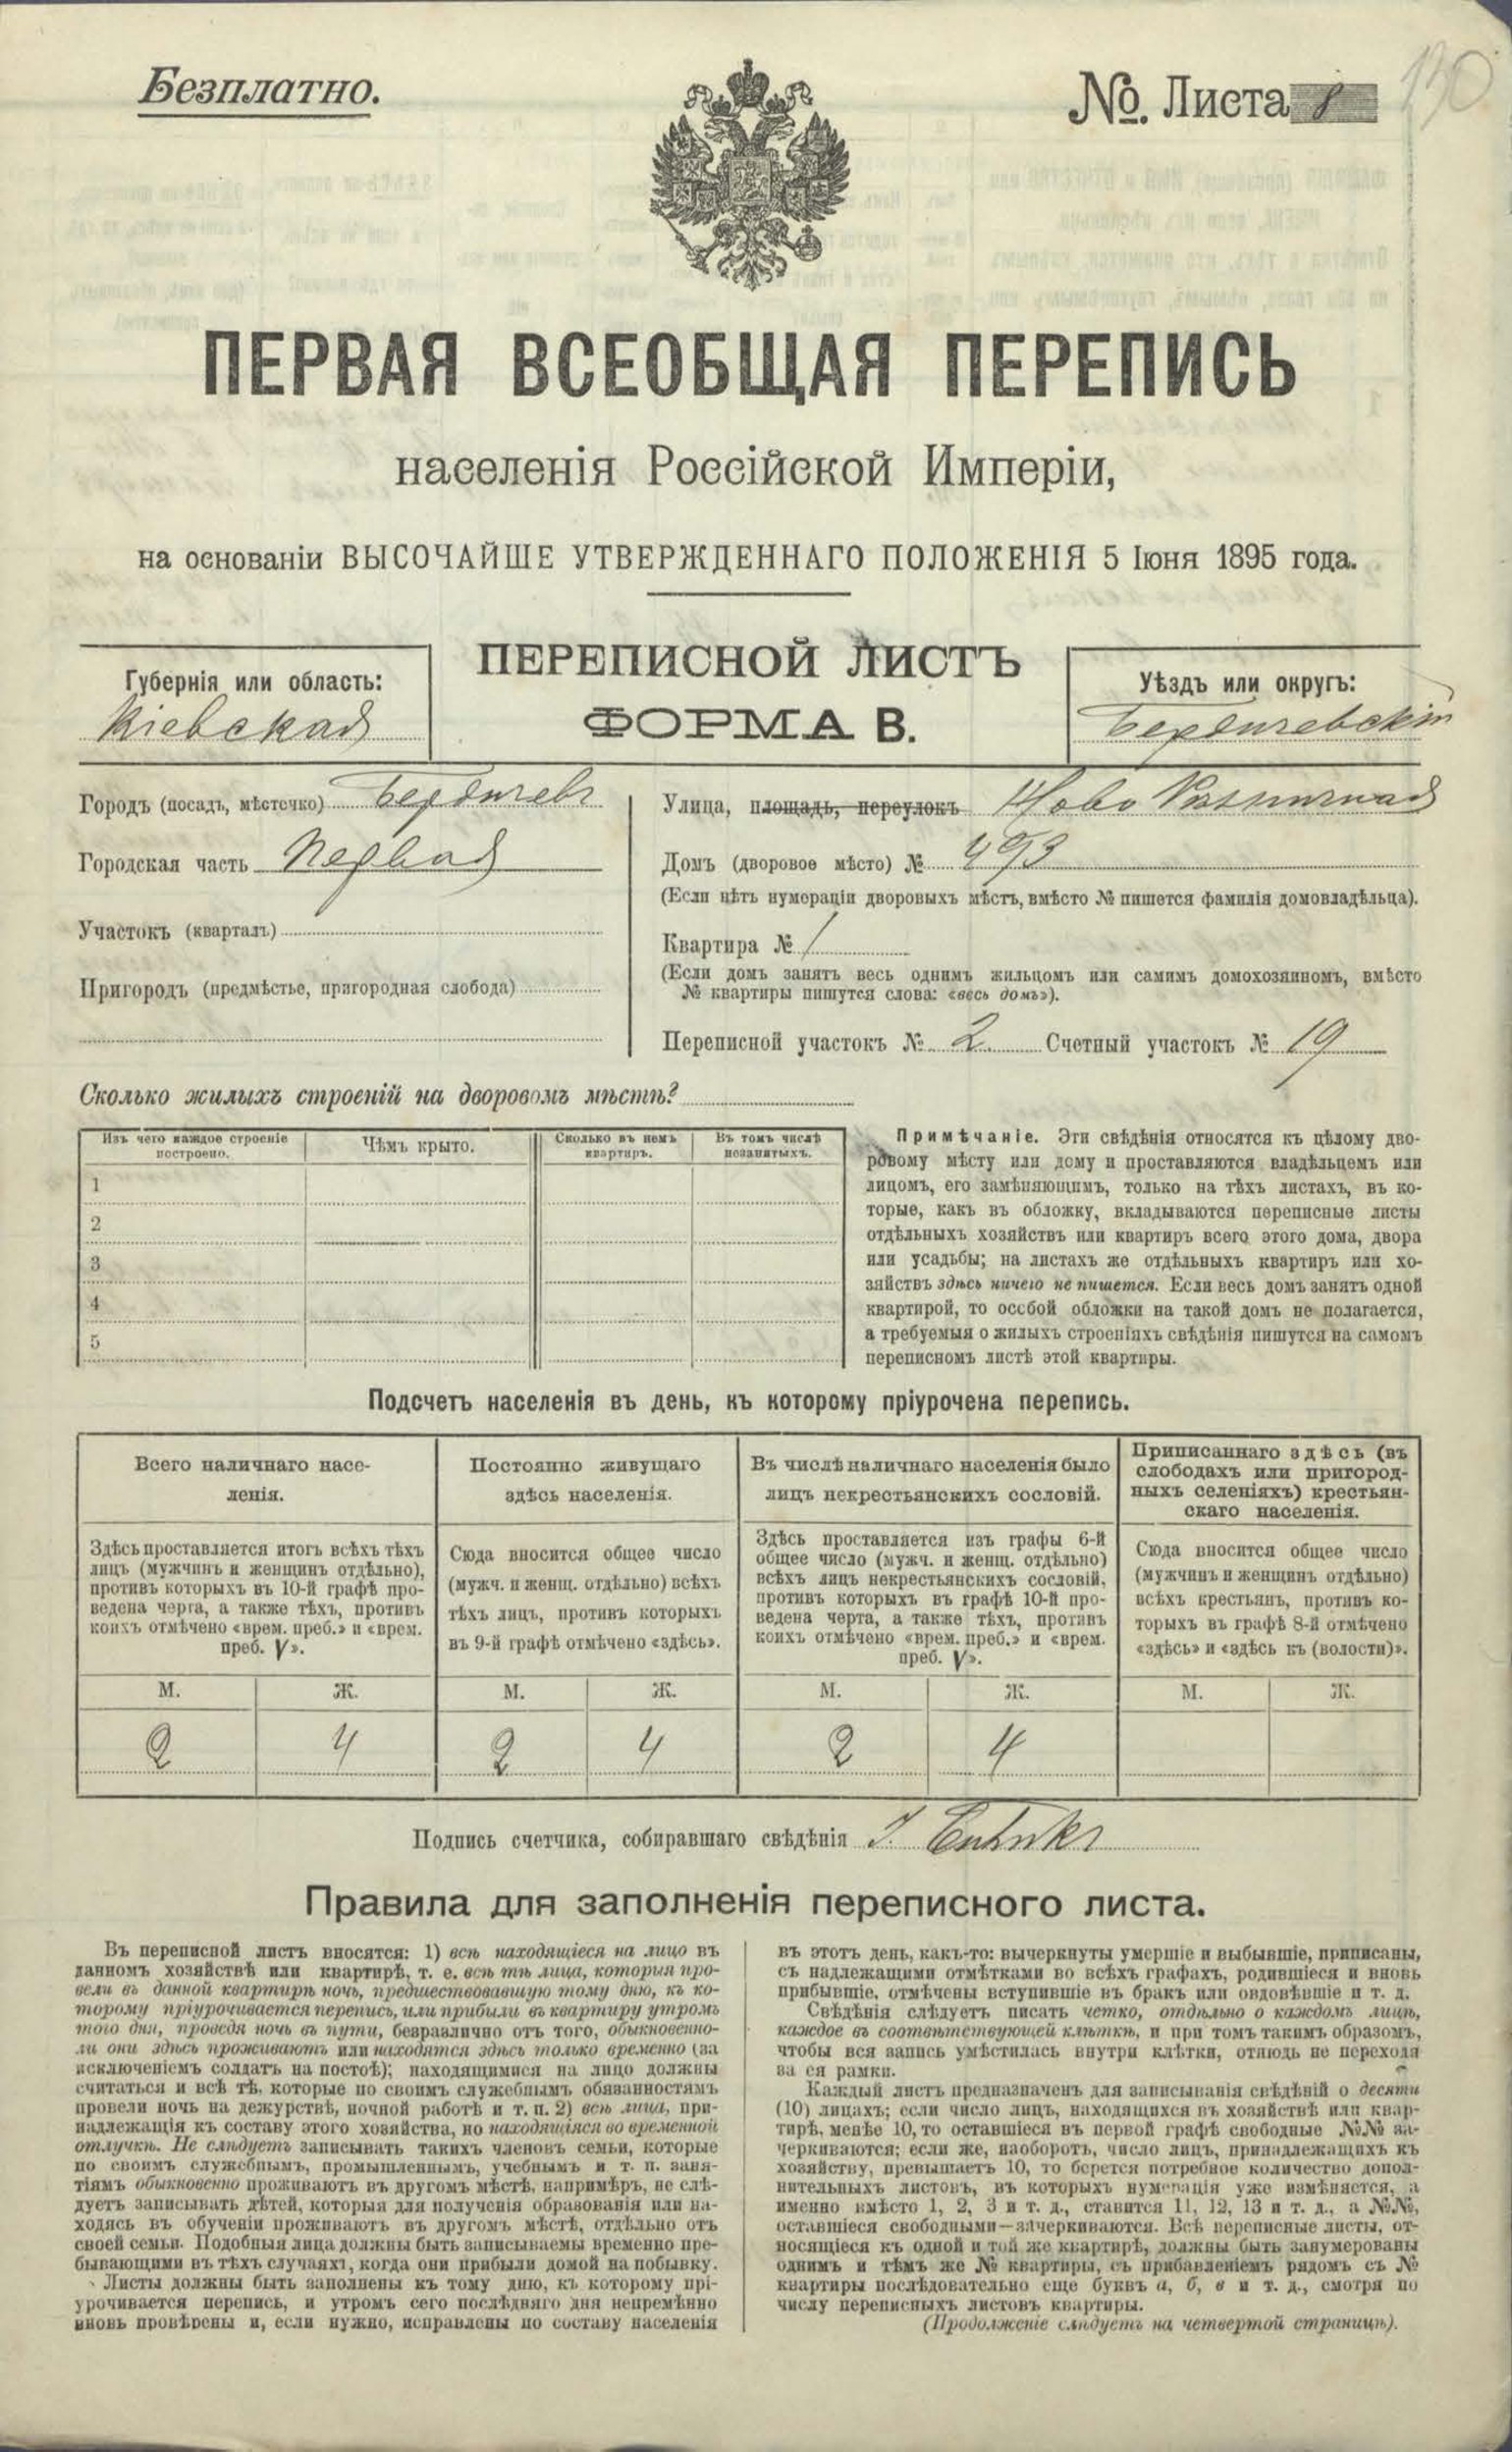 Безплатно.
№. Листа 8
130
ПЕРВАЯ ВСЕОБЩАЯ ПЕРЕПИСЬ
населенія Россійской Имперіи,
на основаніи ВЫСОЧАЙШЕ УТВЕРЖДЕННАГО ПОЛОЖЕНІЯ 5 Іюня 1895 года.
ПЕРЕПИСНОЙ ЛИСТЪ
ФОРМА В.
Губернія или область:
Кіевская
Уѣздъ или округъ:
Бердичевскій
Городъ (посадъ, мѣстечко) Бердичевъ
Городская часть Первая
Участокъ (кварталъ)
Пригородъ (предмѣстье, пригородная слобода)
Улица, площадь, переулокъ Ново
Домъ (дворовое мѣсто) № 493
(Если нѣтъ нумераціи дворовыхъ мѣстъ, вмѣсто № пишется фамилія домовладѣльца).
Квартира № 1
(Если домъ занятъ весь однимъ жильцомъ или самимъ домохозяиномъ, вмѣсто
№ квартиры пишутся слова: «весь домъ»).
Переписной участокъ № 2. Счетный участокъ № 19
Сколько жилыхъ строеній на дворовомъ мѣстѣ?
Изъ чего каждое строеніе
построено.
Чѣмъ крыто.
Сколько въ немъ
квартиръ.
Въ томъ числѣ
незанятыхъ.
1
2
3
4
5
Примѣчаніе. Эти свѣдѣнія относятся къ цѣлому дво-
ровому мѣсту или дому и проставляются владѣльцемъ или
лицомъ, его замѣняющимъ, только на тѣхъ листахъ, въ ко-
торые, какъ въ обложку, вкладываются переписные листы
отдѣльныхъ хозяйствъ или квартиръ всего этого дома, двора
или усадьбы; на листахъ же отдѣльныхъ квартиръ или хо-
зяйствъ здѣсь ничего не пишется. Если весь домъ занятъ одной
квартирой, то особой обложки на такой домъ не полагается,
а требуемыя о жилыхъ строеніяхъ свѣдѣнія пишутся на самомъ
переписномъ листѣ этой квартиры.
Подсчетъ населенія въ день, къ которому пріурочена перепись.
Всего наличнаго насе-
ленія.
Здѣсь проставляется итогъ всѣхъ тѣхъ
лицъ (мужчинъ и женщинъ отдѣльно),
противъ которыхъ въ 10-й графѣ про-
ведена черта, а также тѣхъ, противъ
коихъ отмѣчено «врем. преб.» и «врем.
преб. V».
Постоянно живущаго
здѣсь населенія.
Сюда вносится общее число
(мужч. и женщ. отдѣльно) всѣхъ
тѣхъ лицъ, противъ которыхъ
въ 9-й графѣ отмѣчено «здѣсь».
Въ числѣ наличнаго населенія было
лицъ некрестьянскихъ сословій.
Здѣсь проставляется изъ графы 6-й
общее число (мужч. и женщ. отдѣльно)
всѣхъ лицъ некрестьянскихъ сословій,
противъ которыхъ въ графѣ 10-й про-
ведена черта, а также тѣхъ, противъ
коихъ отмѣчено «врем. преб.» и «врем.
преб. V».
Приписаннаго здѣсь (въ
слободахъ или пригород-
ныхъ селеніяхъ) крестьян-
скаго населенія.
Сюда вносится общее число
(мужчинъ и женщинъ отдѣльно)
всѣхъ крестьянъ, противъ ко-
торыхъ въ графѣ 8-й отмѣчено
«здѣсь» и «здѣсь къ (волости)».
М. Ж. М. Ж. М. Ж. М. Ж.
2 4 2 4 2 4
Подпись счетчика, собиравшаго свѣдѣнія
Правила для заполненія переписного листа.
Въ переписной листъ вносятся: 1) всѣ находящіеся на лицо въ
данномъ хозяйствѣ или квартирѣ, т. е. всѣ тѣ лица, которыя про-
вели въ данной квартирѣ ночь, предшествовавшую тому дню, къ ко-
торому пріурочивается перепись, или прибыли въ квартиру утромъ
того дня, проведя ночь въ пути, безразлично отъ того, обыкновенно-
ли они здѣсь проживаютъ или находятся здѣсь только временно (за
исключеніемъ солдатъ на постоѣ); находящимися на лицо должны
считаться и всѣ тѣ, которые по своимъ служебнымъ обязанностямъ
провели ночь на дежурствѣ, ночной работѣ и т. п. 2) всѣ лица, при-
надлежащія къ составу этого хозяйства, но находящіяся во временной
отлучкѣ. Не слѣдуетъ записывать такихъ членовъ семьи, которые
по своимъ служебнымъ, промышленнымъ, учебнымъ и т. п. заня-
тіямъ обыкновенно проживаютъ въ другомъ мѣстѣ, напримѣръ, не слѣ-
дуетъ записывать дѣтей, которыя для полученія образованія или на-
ходясь въ обученіи проживаютъ въ другомъ мѣстѣ, отдѣльно отъ
своей семьи. Подобныя лица должны быть записываемы временно пре-
бывающими въ тѣхъ случаяхъ, когда они прибыли домой на побывку.
Листы должны быть заполнены къ тому дню, къ которому прі-
урочивается перепись, и утромъ сего послѣдняго дня непремѣнно
вновь провѣрены и, если нужно, исправлены по составу населенія
въ этотъ день, какъ-то: вычеркнуты умершіе и выбывшіе, приписаны,
съ надлежащими отмѣтками во всѣхъ графахъ, родившіеся и вновь
прибывшіе, отмѣчены вступившіе въ бракъ или овдовѣвшіе и т. д.
Свѣдѣнія слѣдуетъ писать четко, отдѣльно о каждомъ лицѣ,
каждое въ соотвѣтствующей клѣткѣ, и при томъ такимъ образомъ,
чтобы вся запись умѣстилась внутри клѣтки, отнюдь не переходя
за ея рамки.
Каждый листъ предназначенъ для записыванія свѣдѣній о десяти
(10) лицахъ; если число лицъ, находящихся въ хозяйствѣ или квар-
тирѣ, менѣе 10, то оставшіеся въ первой графѣ свободные №№ за-
черкиваются; если же, наоборотъ, число лицъ, принадлежащихъ къ
хозяйству, превышаетъ 10, то берется потребное количество допол-
нительныхъ листовъ, въ которыхъ нумерація уже измѣняется, а
именно вмѣсто 1, 2, 3 и т. д., ставится 11, 12, 13 и т. д., а №№,
оставшіеся свободными—зачеркиваются. Всѣ переписные листы, от-
носящіеся къ одной и той же квартирѣ, должны быть занумерованы
однимъ и тѣмъ же № квартиры, съ прибавленіемъ рядомъ съ №
квартиры послѣдовательно еще буквъ а, б, в и т. д., смотря по
числу переписныхъ листовъ квартиры.
(Продолженіе слѣдуетъ на четвертой страницѣ).